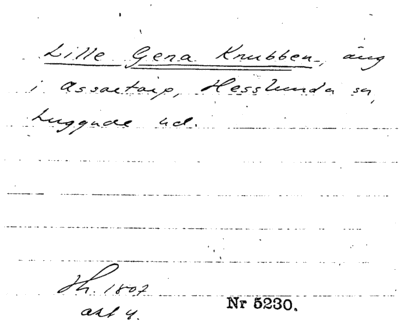 Lille Gena Knubben, äng
i Assartorp, Hesslunda sn,
Luggude hd.
Th. 1807
akt 4.
Nr 5230.